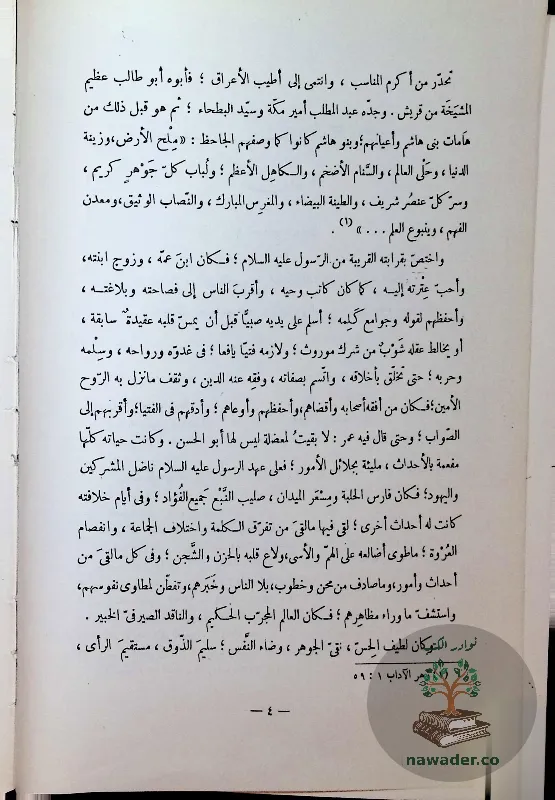 تحدّر من أكرم المناسب ، وانتمى إلى أطيب الأعراق ؛ فأبوه أبو طالب عظيم
المشيَخَة من قريش . وجدّه عبد المطلب أمير مكّة وسيّد البطحاء ؛ ثم هو قبل ذلك من
هَامات بنى هاشم وأعيانهم؛ وبنو هاشم كانوا كما وصفهم الجاحظ : «مِلْح الأرض، وزينة
الدنيا ، وحَلْى العالم ، والسَّنام الأضخم ، والكاهِل الأعظم ؛ ولُباب كلّ جَوْهر كريم ،
وسرّ كلّ عنصُر شريف ، والطينة البيضاء ، والمغرِس المبارك ، والنّصاب الوثيق، ومعدن
الفهم ، وينبوع العلم . . . » (١) .
واختصّ بقرابته القريبة من الرّسول عليه السلام ؛ فكان ابنَ عمّه ، وزوج ابنته،
وأحبّ عِتْرته إليه ، كما كان كاتب وحيه ، وأقربَ الناس إلى فصاحته وبلاغته ،
وأحفظهم لقوله وجوامع كَلِمه ؛ أسلم على يديه صبيًّا قبل أن يمسّ قلبه عقيدةٌ سابقة ،
أو يخالط عقله شَوْبٌ من شرك موروث ؛ ولازمه فتيًّا يافعا ؛ فى غدوّه ورواحه ، وسِلْمه
وحربه ؛ حتى تخلّق بأخلاقه ، واتّسم بصفاته ، وفقِه عنه الدين ، وثقف مانزل به الرّوح
الأمين؛ فكان من أفقه أصحابه وأقضاهم، وأحفظهم وأوعاهم ؛ وأدقهم فى الفتيا؛ وأقربهم إلى
الصّواب ؛ وحتى قال فيه عمر : لا بقيتُ لمعضلة ليس لها أبو الحسن . وكانت حياته كلّها
مفعمة بالأحداث ، مليئة بجلائل الأمور ؛ فعلى عهد الرسول عليه السلام ناضل المشركين
واليهود؛ فكان فارس الحلبة ومِسْعَر الميدان ، صليب النَّبْع جَميع الفُؤاد ؛ وفى أيام خلافته
كانت له أحداث أخرى ؛ لقى فيها مالقىَ من تفرّق الكلمة واختلاف الجماعة ، وانفصام
العُرْوة ؛ ماطوى أضالعه على الهمّ والأسى، ولاع قلبه بالحزن والشَّجن ؛ وفى كل مالقىَ من
أحداث وأمور، وماصادف من محن وخطوب، بلا الناس وخَبَرهم، وتفطّن لمطاوى نفوسهم،
واستشفّ ما وراء مظاهرهم ؛ فكان العالم المجرّب الحكيم ، والناقد الصيرفىّ الخبير .
وكان لطيف الحِسّ ، نقىّ الجوهر ، وضاء النَّفْس ؛ سليمَ الذّوق ، مستقيمَ الرأى ،
نوادر الكتب
هر الآداب ١ : ٥٩
— ٤ —
nawader.co